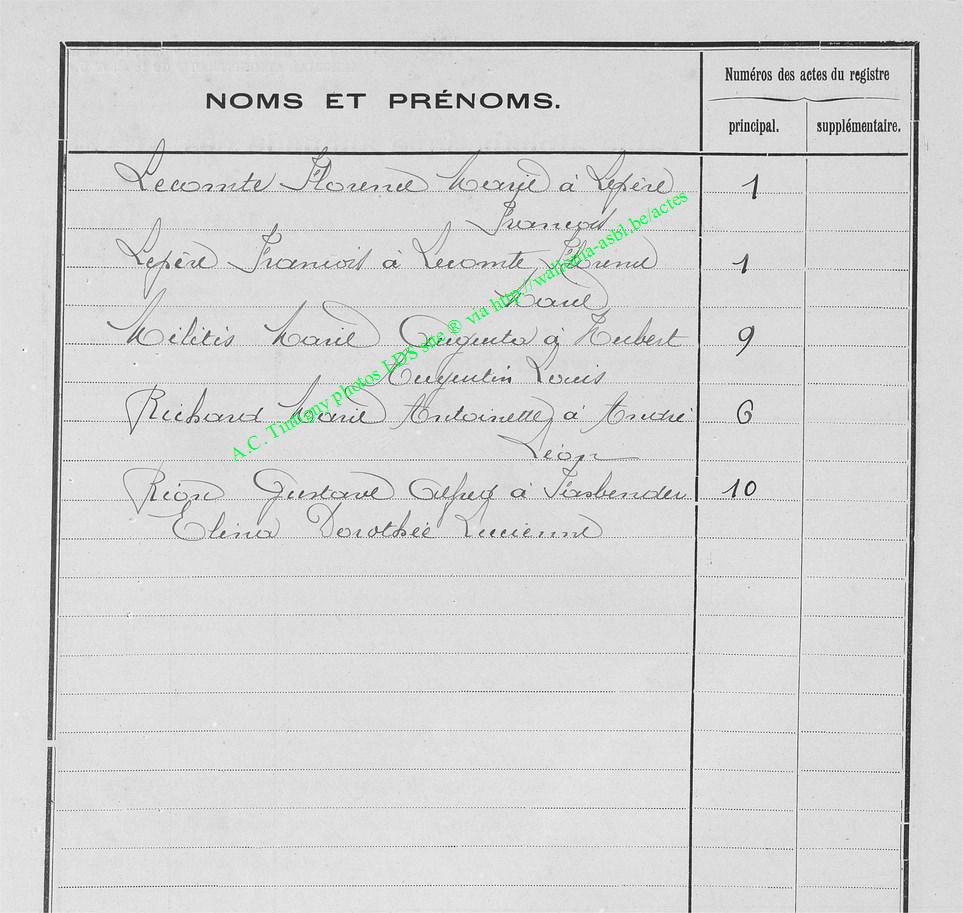 Numéros des actes du registre
NOMS ET PRÉNOMS.
principal. supplémentaire.
Lecomte Florence Marie à Lepère 1
François
Lepère François à Lecomte Florence 1
Marie
Militis Marie Augusta à Hubert 9
Augustin Louis
Richard Marie Antoinette à André 6
Léon
Rion Gustave Alfred à Fasbender 10
Elina Dorothée Lucienne
A.C. Tintigny photos LDS site ® via http://wallonia-asbl.be/actes